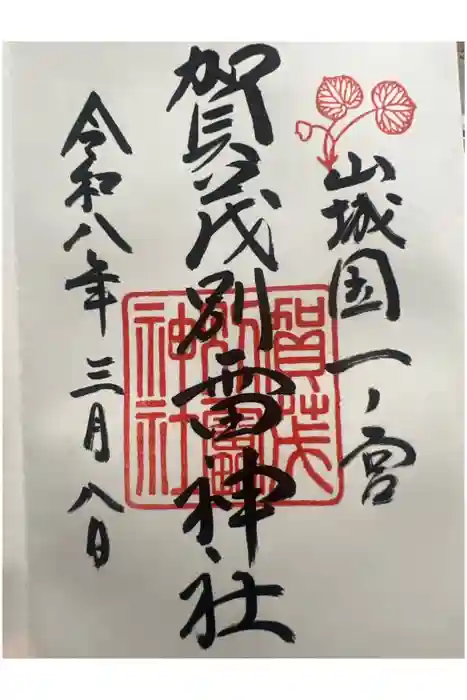 山城国一ノ宮
賀茂別雷神社
賀茂別雷神社
令和八年三月八日